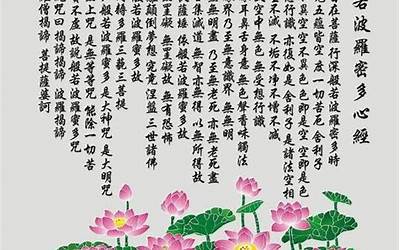 若波羅密多心經
在菩薩行深般若波羅密多時
五蘊皆空 度一切苦厄 舍利子
異空 空不異色 色即是空 空即是色
想行識 亦復如是 舍利子 是諸法空相
不滅 不垢不净 不增不減
空中無色 無受想行識
耳鼻舌身意 無色聲香味觸法
界 乃至無意識界 無無明
無明盡 乃至無老死 亦無老死盡
集滅道 無智亦無得 以無所得故
提薩埵 依般若波羅密多故
罣礙 無罣礙故 無有恐怖
顛倒夢想 究竟涅盤 三世諸佛
多羅三藐三菩提
般若波羅密多 是大神咒 是大明咒
上咒 是無等等咒 能除一切苦
虛 故說般若波羅密多咒
咒曰 揭諦揭諦 波羅揭諦
僧揭諦 菩提薩婆訶